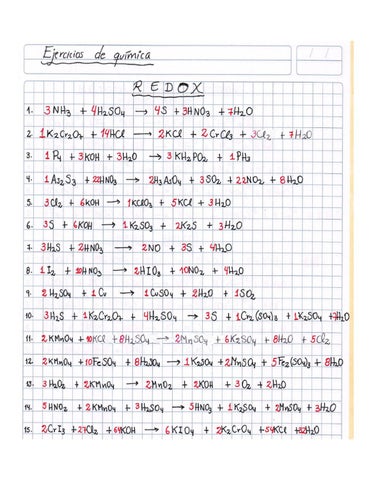 Ejercicios de química
REDOX
1. 3NH₃ + 4H₂SO₄ → 4S + 3HNO₃ + 7H₂O
2. 1K₂Cr₂O₇ + 14HCl → 2KCl + 2CrCl₃ + 3Cl₂ + 7H₂O
3. 1P₄ + 3KOH + 3H₂O → 3KH₂PO₂ + 1PH₃
4. 1As₂S₃ + 22HNO₃ → 2H₃AsO₄ + 3SO₂ + 22NO₂ + 8H₂O
5. 3Cl₂ + 6KOH → 1KClO₃ + 5KCl + 3H₂O
6. 3S + 6KOH → 1K₂SO₃ + 2K₂S + 3H₂O
7. 3H₂S + 2HNO₃ → 2NO + 3S + 4H₂O
8. 1I₂ + 10HNO₃ → 2HIO₃ + 10NO₂ + 4H₂O
9. 2H₂SO₄ + 1Cu → 1CuSO₄ + 2H₂O + 1SO₂
10. 3H₂S + 1K₂Cr₂O₇ + 4H₂SO₄ → 3S + 1Cr₂(SO₄)₃ + 1K₂SO₄ + 7H₂O
11. 2KMnO₄ + 10KCl + 8H₂SO₄ → 2MnSO₄ + 6K₂SO₄ + 8H₂O + 5Cl₂
12. 2KMnO₄ + 10FeSO₄ + 8H₂SO₄ → 1K₂SO₄ + 2MnSO₄ + 5Fe₂(SO₄)₃ + 8H₂O
13. 3H₂O₂ + 2KMnO₄ → 2MnO₂ + 2KOH + 3O₂ + 2H₂O
14. 5HNO₂ + 2KMnO₄ + 3H₂SO₄ → 5HNO₃ + 1K₂SO₄ + 2MnSO₄ + 3H₂O
15. 2CrI₃ + 27Cl₂ + 64KOH → 6KIO₄ + 2K₂CrO₄ + 54KCl + 32H₂O